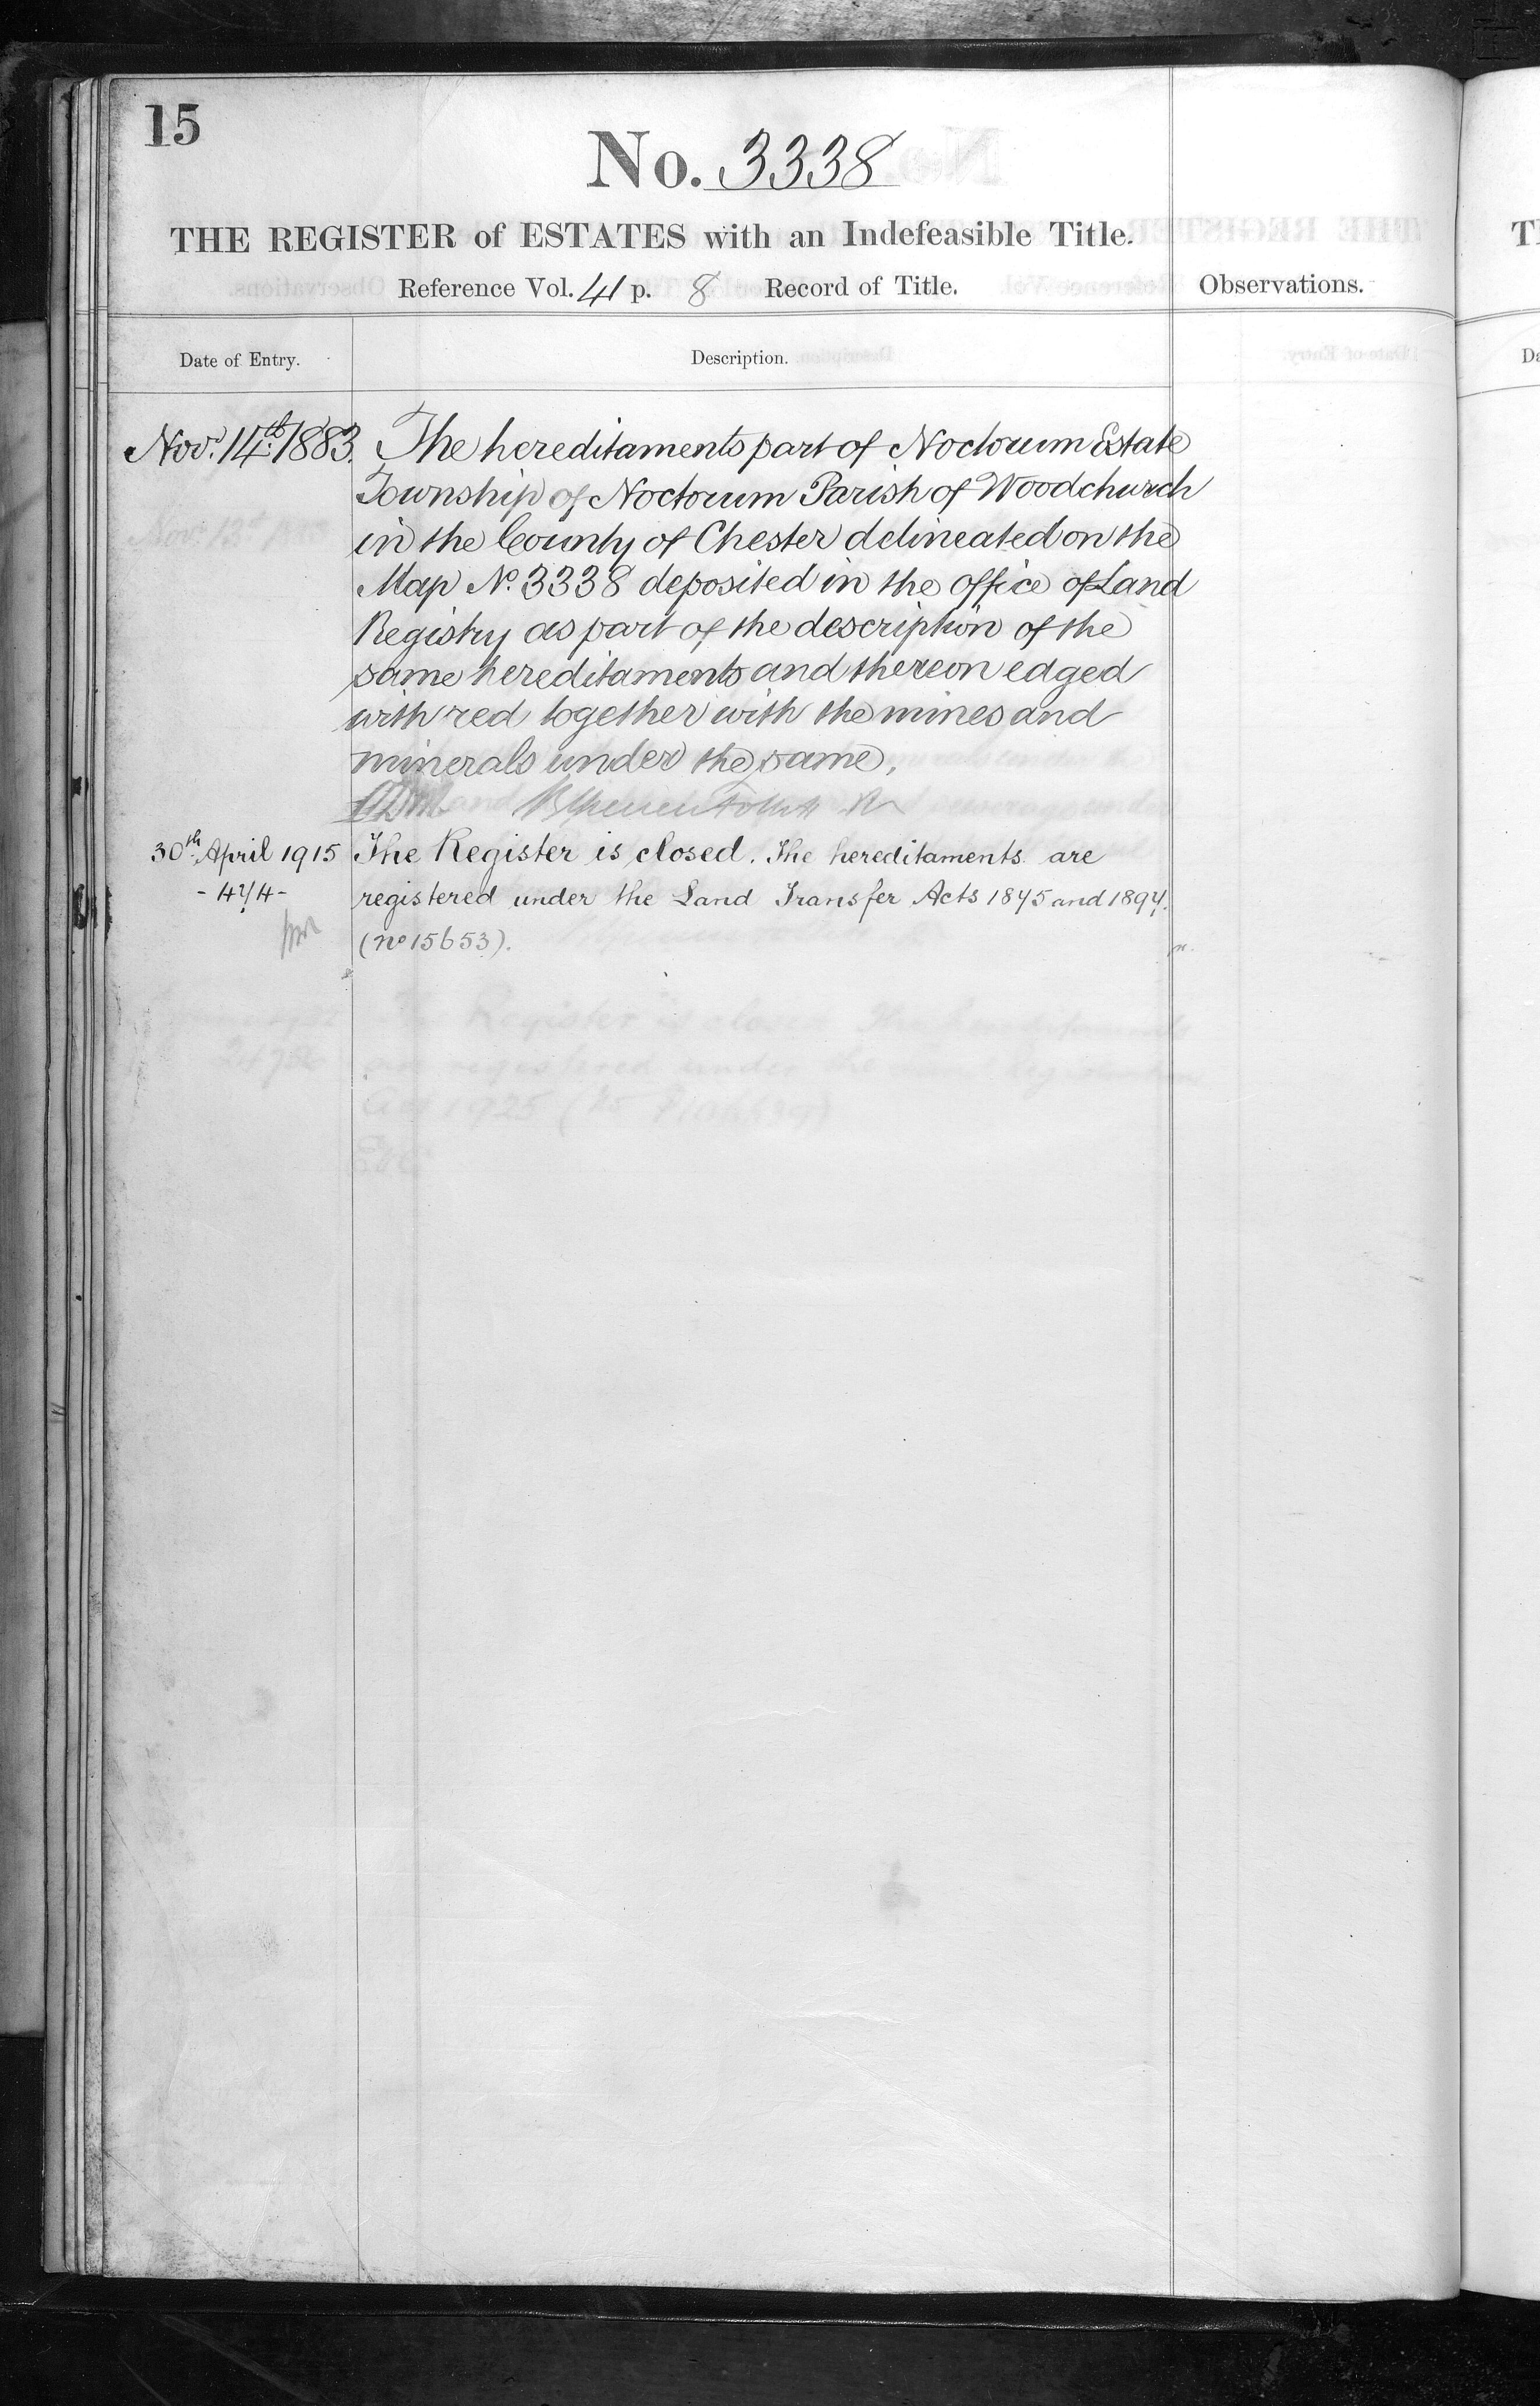 15
No. 3338
THE REGISTER of ESTATES with an Indefeasible Title.
Reference Vol. 41 p. 8 Record of Title.
Observations.
Date of Entry.
Description.
Nov: 14th: 1883. The hereditaments part of Noctorum Estate
Township of Noctorum Parish of Woodchurch
in the County of Chester delineated on the
Map No. 3338 deposited in the office of Land
Registry as part of the description of the
same hereditaments and thereon edged
with red together with the mines and
minerals under the same,
30th April 1915 The Register is closed. The hereditaments are
- 474 - registered under the Land Transfer Acts 1875 and 1897.
(no 15653).